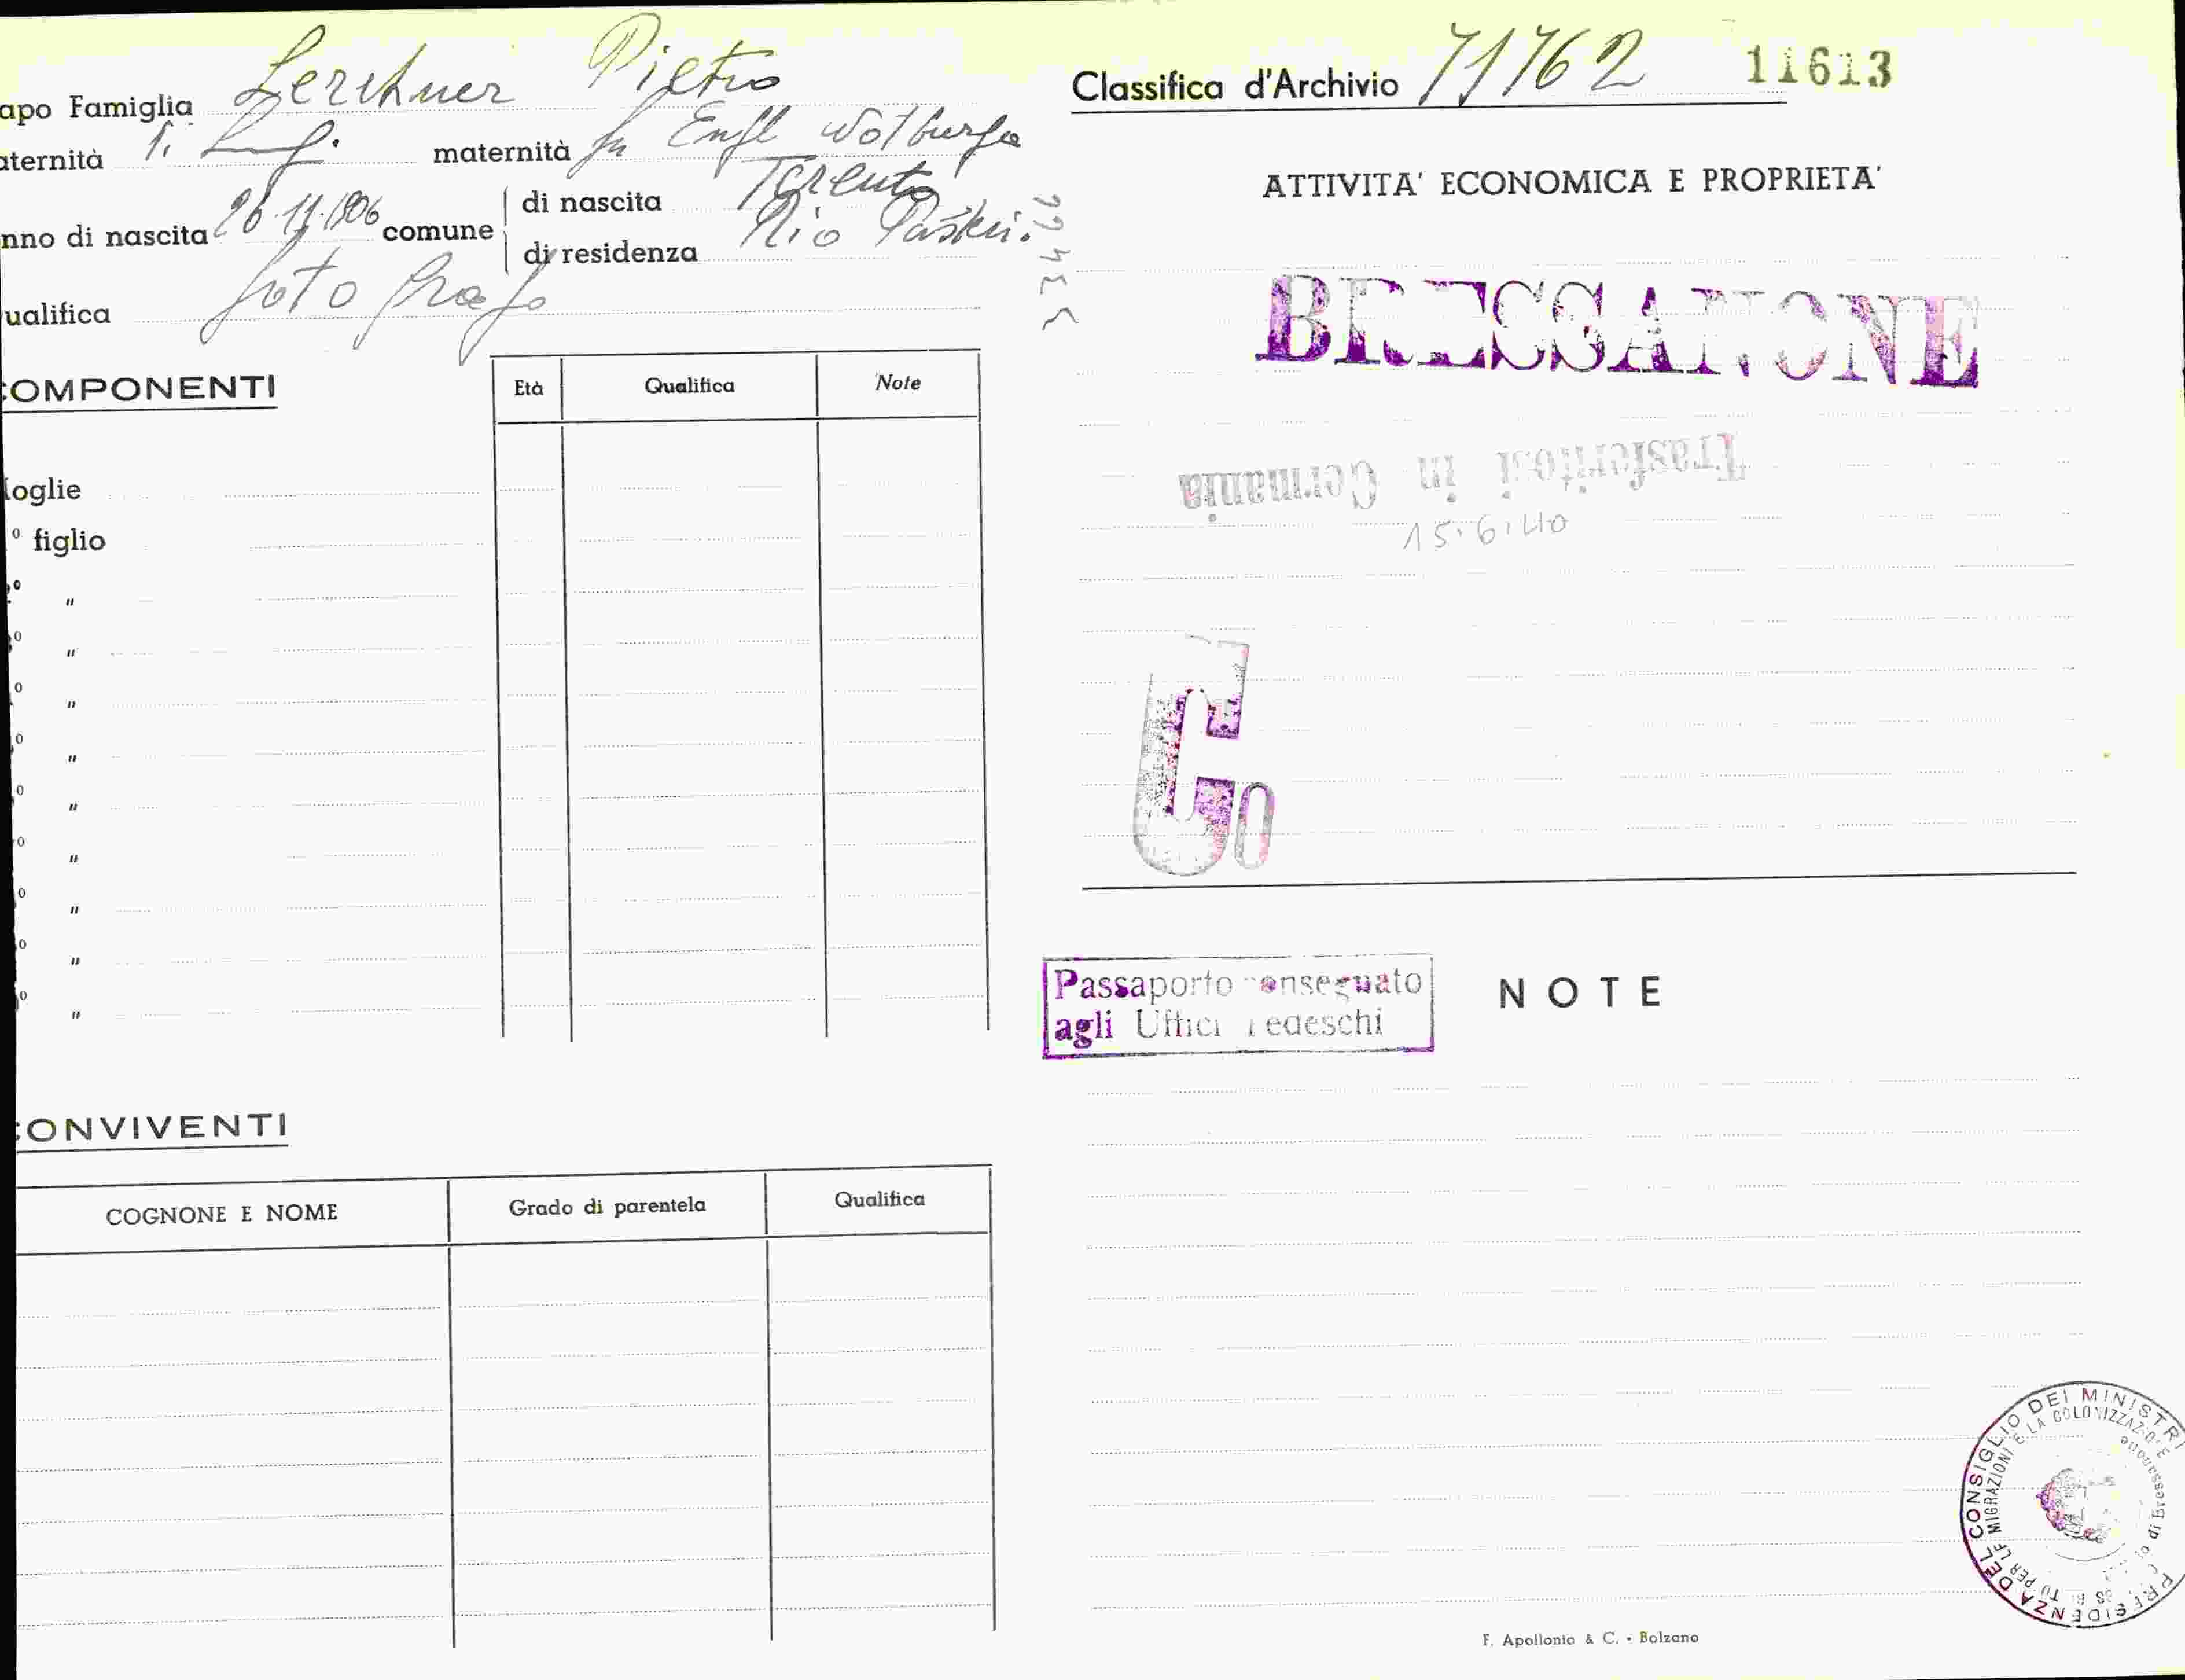 apo Famiglia Lerchner Pietro
aternità maternità fu Engl Wolburga
nno di nascita 26.11.1906 comune di nascita Terento
di residenza Rio Pusteria
ualifica fotografo
COMPONENTI Età Qualifica Note
oglie
° figlio
° "
° "
° "
° "
° "
° "
° "
° "
° "
CONVIVENTI
COGNONE E NOME Grado di parentela Qualifica
Classifica d'Archivio 71762 11613
ATTIVITA' ECONOMICA E PROPRIETA'
BRESSANONE
Trasferitosi in Germania
15.6.40
G0
Passaporto consegnato
agli Uffici Tedeschi
NOTE
PRESIDENZA DEL CONSIGLIO DEI MINISTRI
PER LE MIGRAZIONI E LA COLONIZZAZIONE
di Bressanone
F. Apollonio & C. - Bolzano